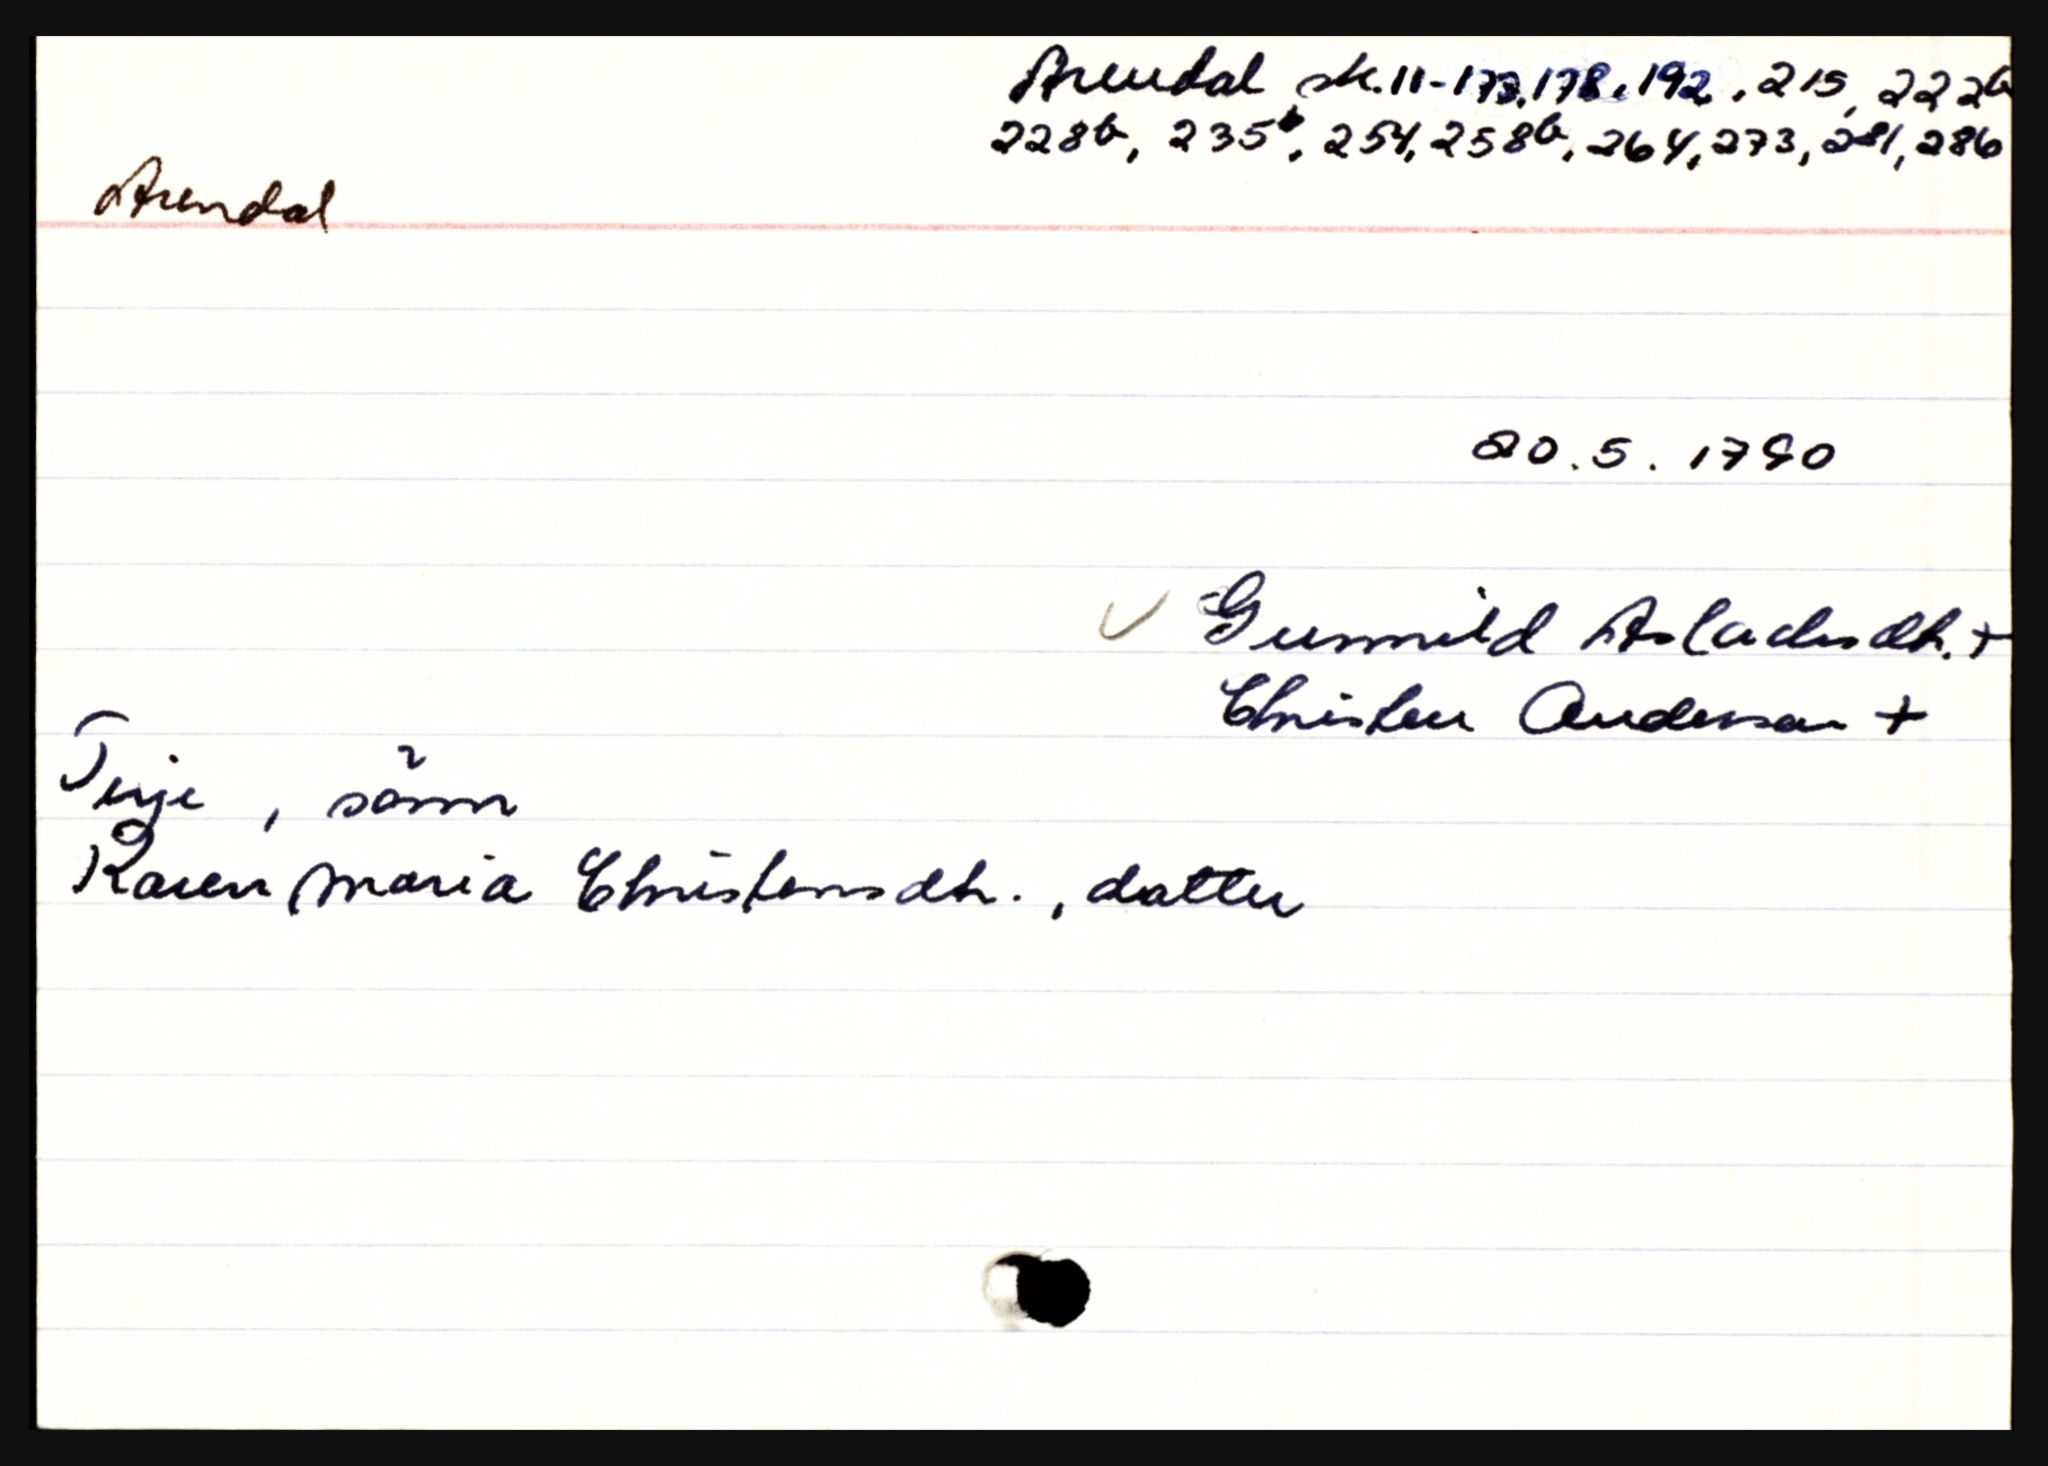 Arendal sk. 11-173, 178, 192, 215, 222b
228b, 235b, 254, 258b, 264, 273, 281, 286
Arendal
20.5.1790
✓ Gunnild Aslachsdtr. +
Christen Andersen +
Terje, sönn
Karen Maria Christensdtr., datter